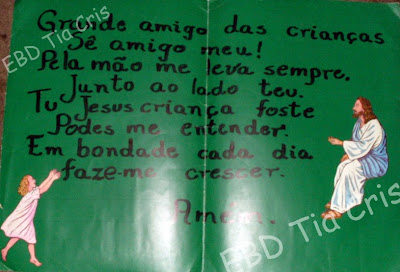 Grande amigo das crianças
Sê amigo meu!
Pela mão me leva sempre,
Junto ao lado teu.
Tu Jesus criança foste
Podes me entender.
Em bondade cada dia
faze-me crescer.
Amém.
EBD Tia Cris
EBD Tia Cris